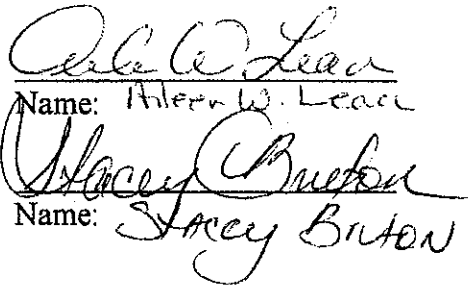 W. Lean
Name: Aileen W. Lean
Stacey Bruton
Name: Stacey Bruton